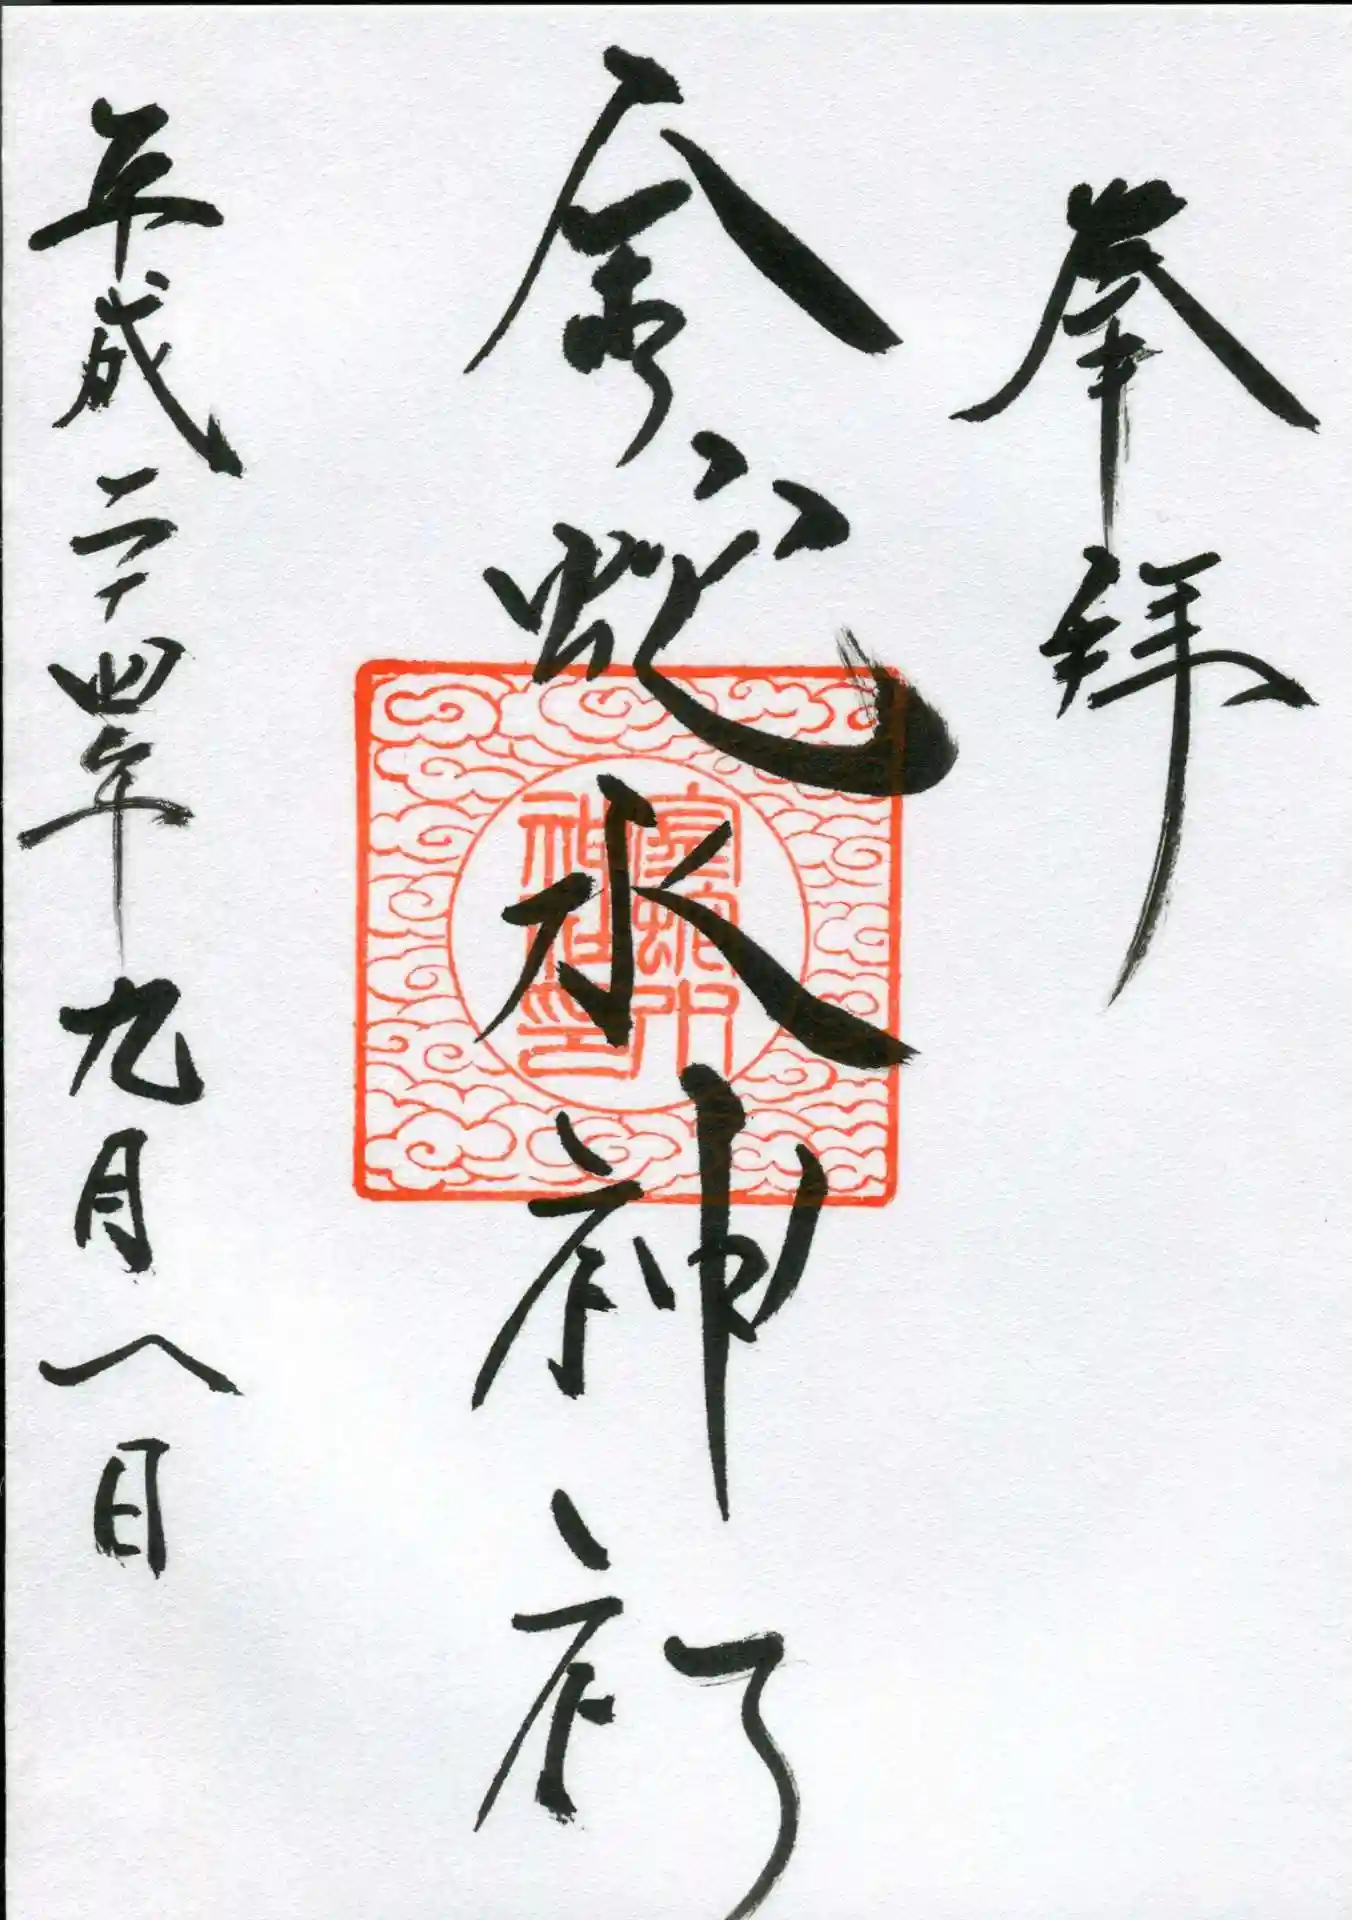 奉拝
金蛇水神社
金蛇水
神社印
平成二十四年九月八日